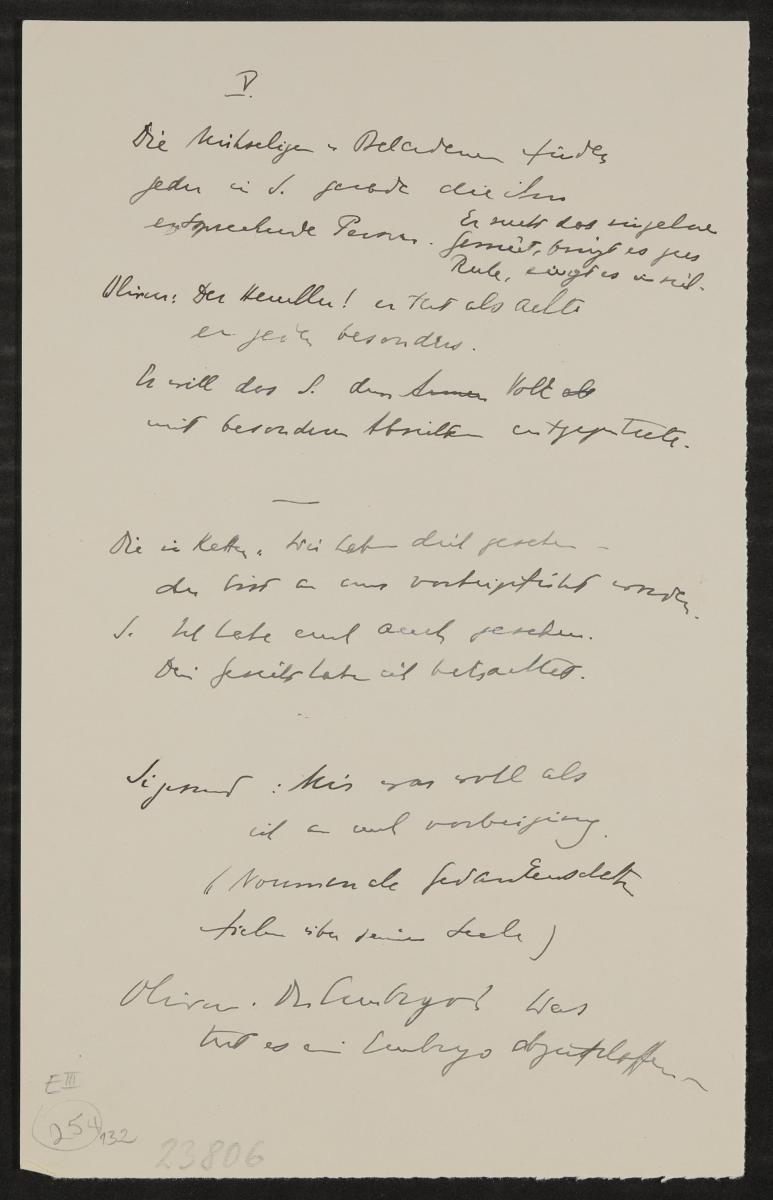 V.
Die Mühseligen u Beladenen finden
jeder in S. gerade die ihm
entsprechende Person.
Er sucht das eingeborne
Gemüt, bringt es zur
Ruhe,
Olivier: Der Heuchler! er tut als achte
er jeden besonders.
Er will das S. dem Armen Volk als
mit besonderen Absichten entgegentrete.
Die in Ketten: Wir haben dich gesehen –
du bist an uns vorbeigeführt worden.
S. Ich habe euch auch gesehen.
Dein Gesicht habe ich betrachtet.
Sigismund: Mir war wohl als
ich an euch vorbeiging.
( Gedanken
ziehen über seine Seele )
Olivier. Der Embryo! Was
tut es ein Embryo abzutun
E III
254
132
23806